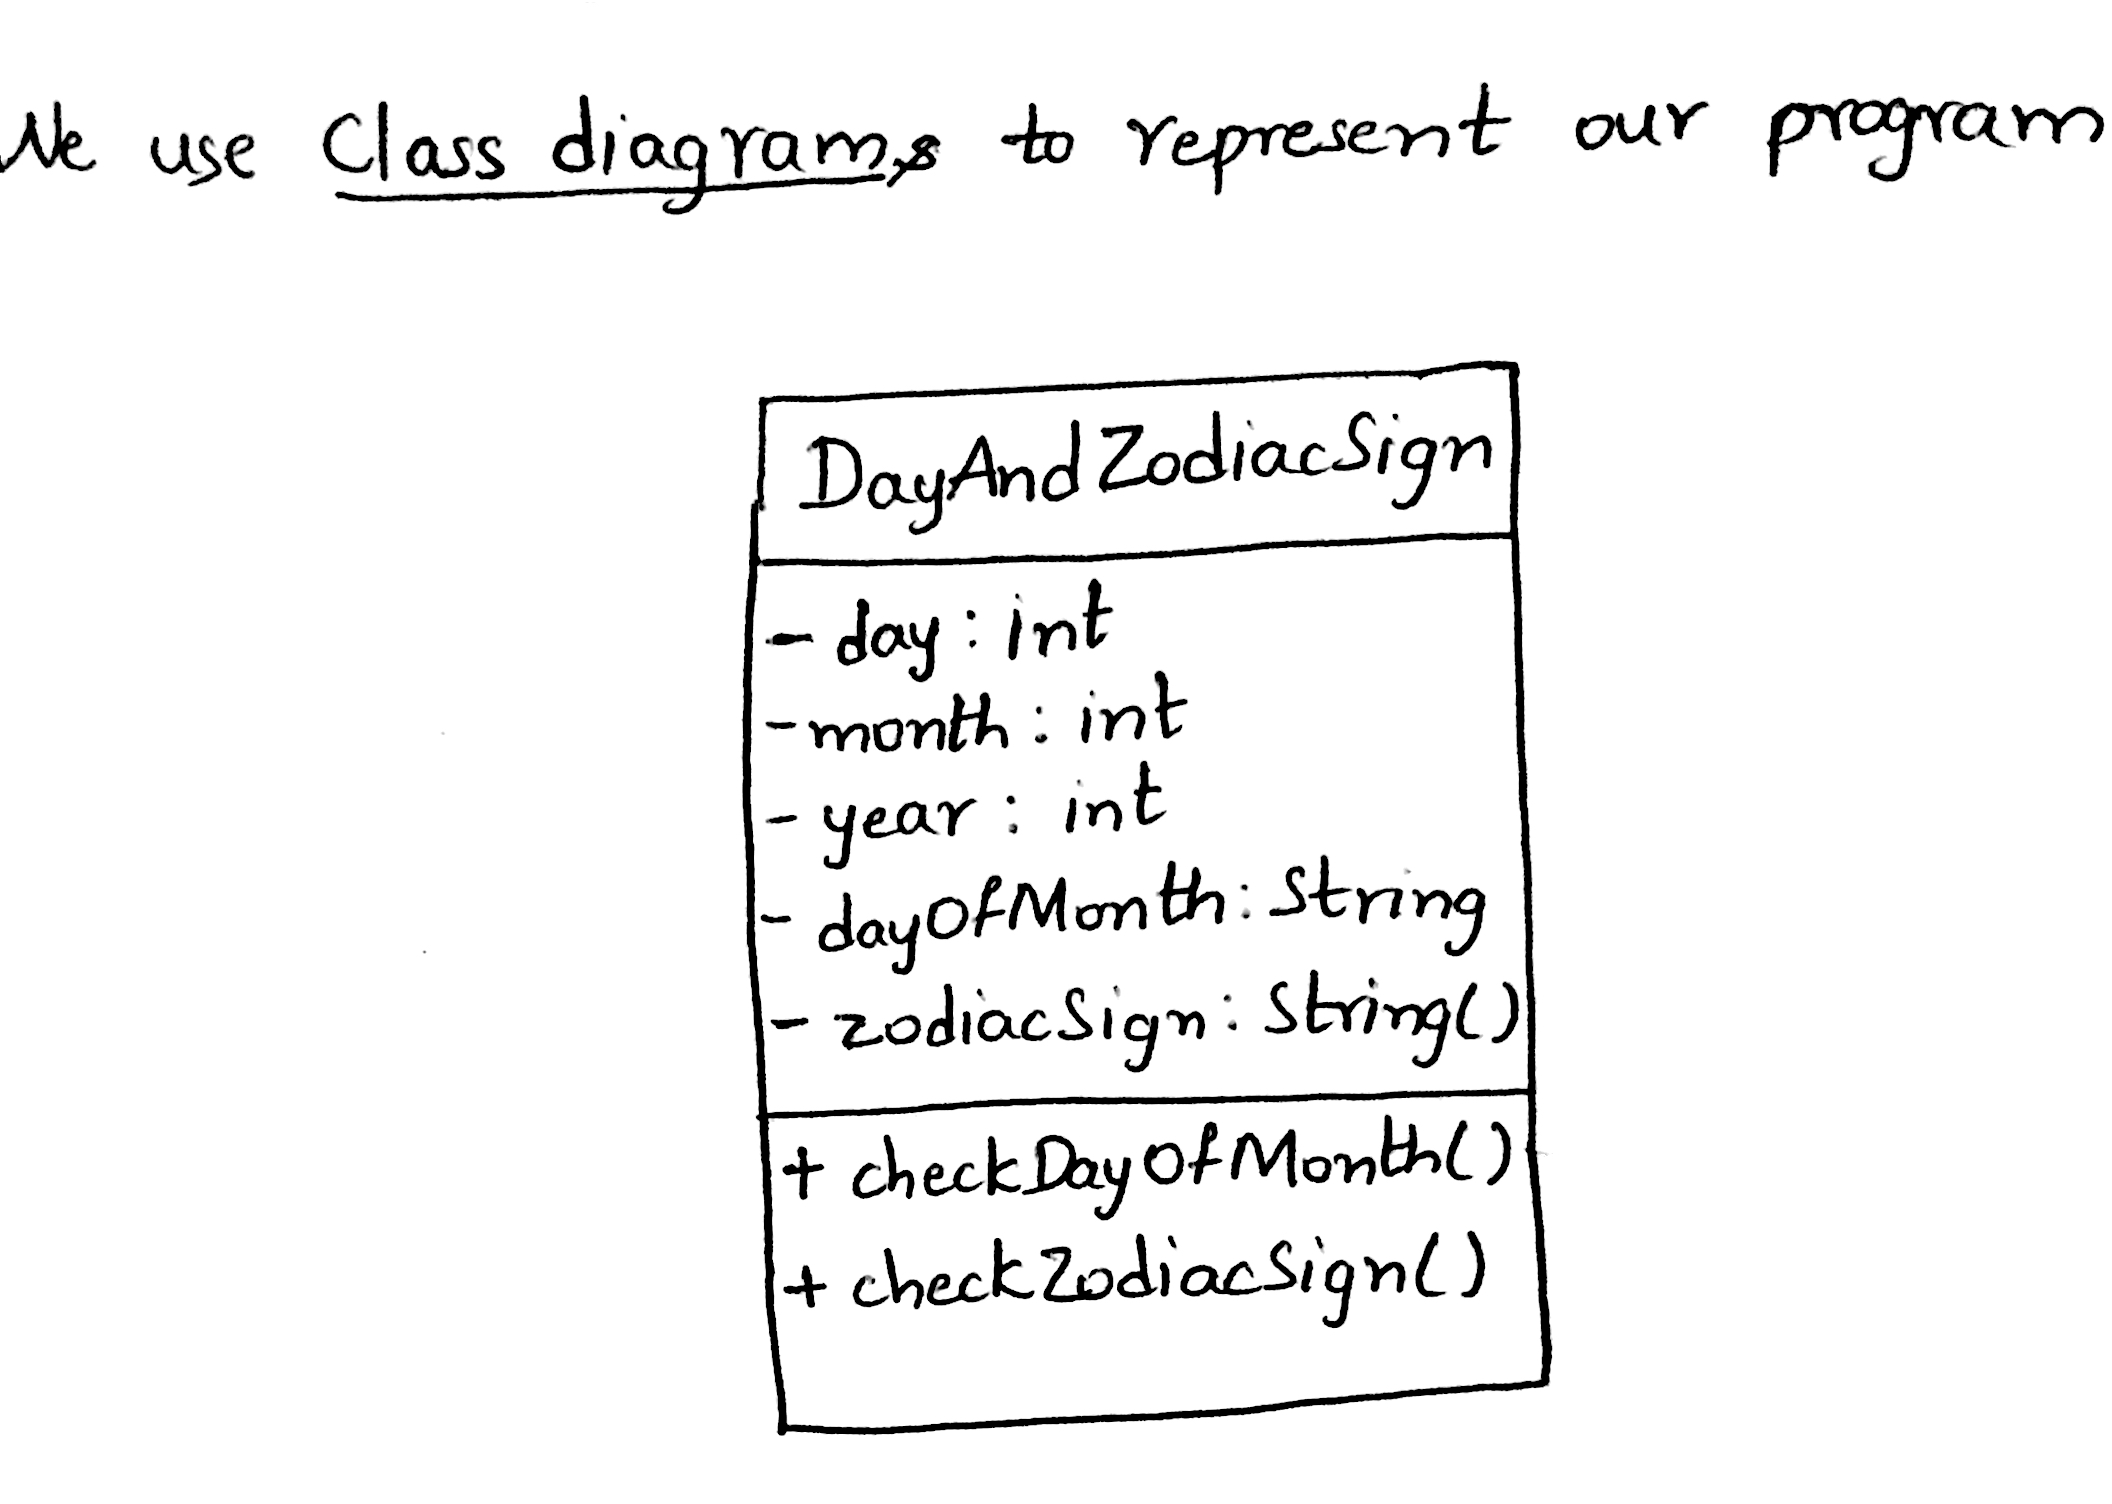 We use Class diagrams to represent our program
DayAndZodiacSign
- day : int
- month : int
- year : int
- dayOfMonth : String
- zodiacSign : String()
+ checkDayOfMonth()
+ checkZodiacSign()